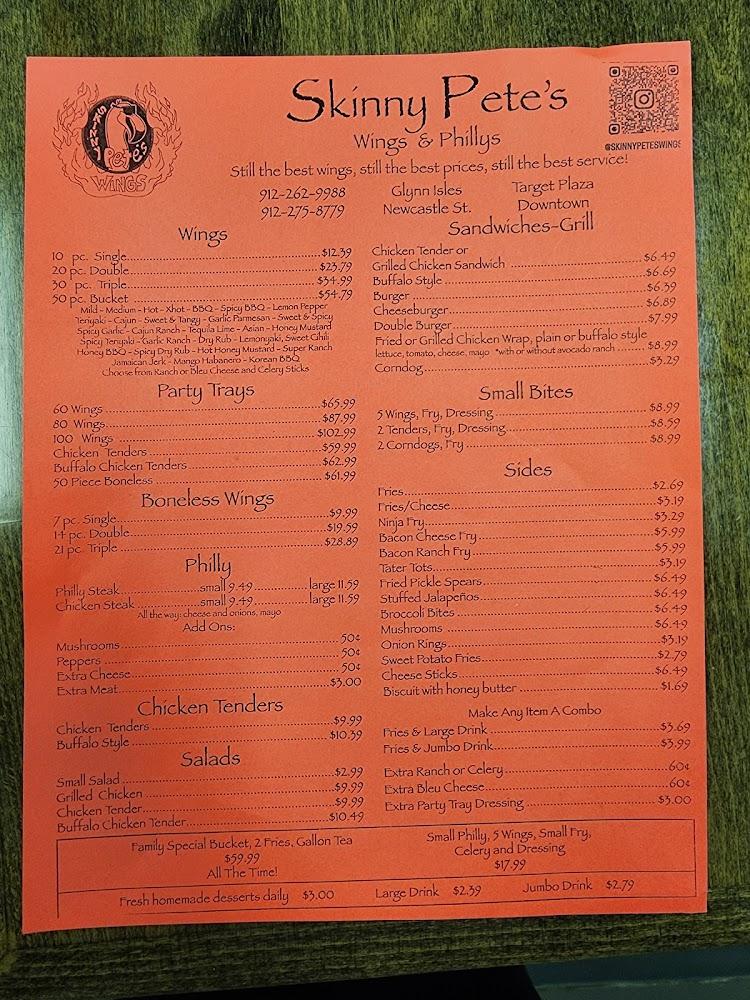 SKINNY
Pete's
WINGS
Skinny Pete's
Wings & Phillys
@SKINNYPETESWINGS
Still the best wings, still the best prices, still the best service!
912-262-9988 Glynn Isles Target Plaza
912-275-8779 Newcastle St. Downtown
Wings
10 pc. Single $12.39
20 pc. Double $23.79
30 pc. Triple $34.99
50 pc. Bucket $54.79
Mild - Medium - Hot - Xhot - BBQ - Spicy BBQ - Lemon Pepper
Teriyaki - Cajun - Sweet & Tangy - Garlic Parmesan - Sweet & Spicy
Spicy Garlic - Cajun Ranch - Tequila Lime - Asian - Honey Mustard
Spicy Teriyaki - Garlic Ranch - Dry Rub - Lemonyaki, Sweet Chili
Honey BBQ - Spicy Dry Rub - Hot Honey Mustard - Super Ranch
Jamaican Jerk - Mango Habanero - Korean BBQ
Choose from Ranch or Bleu Cheese and Celery Sticks
Party Trays
60 Wings $65.99
80 Wings $87.99
100 Wings $102.99
Chicken Tenders $59.99
Buffalo Chicken Tenders $62.99
50 Piece Boneless $61.99
Boneless Wings
7 pc. Single $9.99
14 pc. Double $19.59
21 pc. Triple $28.89
Philly
Philly Steak small 9.49 large 11.59
Chicken Steak small 9.49 large 11.59
All the way: cheese and onions, mayo
Add Ons:
Mushrooms 50¢
Peppers 50¢
Extra Cheese 50¢
Extra Meat $3.00
Chicken Tenders
Chicken Tenders $9.99
Buffalo Style $10.39
Salads
Small Salad $2.99
Grilled Chicken $9.99
Chicken Tender $9.99
Buffalo Chicken Tender $10.49
Sandwiches-Grill
Chicken Tender or
Grilled Chicken Sandwich $6.49
Buffalo Style $6.69
Burger $6.39
Cheeseburger $6.89
Double Burger $7.99
Fried or Grilled Chicken Wrap, plain or buffalo style
lettuce, tomato, cheese, mayo *with or without avocado ranch $8.99
Corndog $3.29
Small Bites
5 Wings, Fry, Dressing $8.99
2 Tenders, Fry, Dressing $8.59
2 Corndogs, Fry $8.99
Sides
Fries $2.69
Fries/Cheese $3.19
Ninja Fry $3.29
Bacon Cheese Fry $5.99
Bacon Ranch Fry $5.99
Tater Tots $3.19
Fried Pickle Spears $6.49
Stuffed Jalapeños $6.49
Broccoli Bites $6.49
Mushrooms $6.49
Onion Rings $3.19
Sweet Potato Fries $2.79
Cheese Sticks $6.49
Biscuit with honey butter $1.69
Make Any Item A Combo
Fries & Large Drink $3.69
Fries & Jumbo Drink $3.99
Extra Ranch or Celery 60¢
Extra Bleu Cheese 60¢
Extra Party Tray Dressing $3.00
Family Special Bucket, 2 Fries, Gallon Tea
$59.99
All The Time!
Small Philly, 5 Wings, Small Fry,
Celery and Dressing
$17.99
Fresh homemade desserts daily $3.00 Large Drink $2.39 Jumbo Drink $2.79